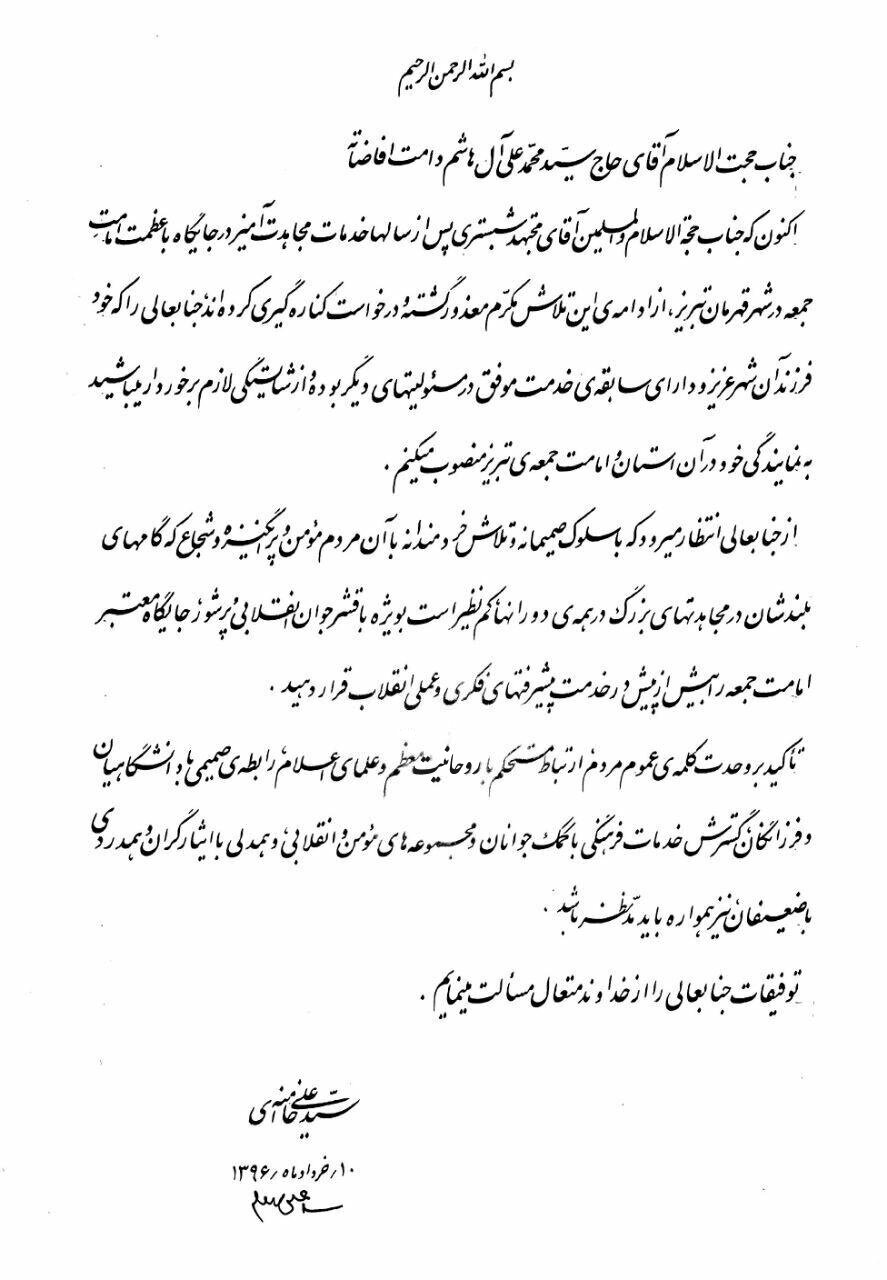 بسم الله الرحمن الرحیم
جناب حجت الاسلام آقای حاج سیّد محمّد علی آل هاشم دامت افاضاته
اکنون که جناب حجة الاسلام والمسلمین آقای مجتهد شبستری پس از سالها خدمات مجاهدت آمیز در جایگاه با عظمت امامت
جمعه در شهر قهرمان تبریز، از ادامه‌ی این تلاش مکرّم معذور گشته و درخواست کناره گیری کرده‌اند جنابعالی را که خود
فرزند آن شهر عزیز و دارای سابقه‌ی خدمت موفق در مسئولیتهای دیگر بوده و از شایستگی لازم برخوردار میباشید
به نمایندگی خود در آن استان و امامت جمعه‌ی تبریز منصوب میکنم.
از جنابعالی انتظار میرود که با سلوک صمیمانه و تلاش خردمندانه با آن مردم مؤمن و پرانگیزه و شجاع که گامهای
بلندشان در مجاهدتهای بزرگ در همه‌ی دورانها کم نظیر است بویژه با قشر جوان انقلابی و پرشور، جایگاه معتبر
امامت جمعه را بیش از پیش در خدمت پیشرفتهای فکری و عملی انقلاب قرار دهید.
تأکید بر وحدت کلمه‌ی عموم مردم، ارتباط مستحکم با روحانیت معظم و علمای اعلام، رابطه‌ی صمیمی با دانشگاهیان
و فرزانگان، گسترش خدمات فرهنگی با کمک جوانان و مجموعه‌های مؤمن و انقلابی، و همدلی با ایثارگران و همدردی
با ضعیفان نیز همواره باید مدّ نظر باشد.
توفیقات جنابعالی را از خداوند متعال مسألت مینمایم.
سیّد علی خامنه‌ای
۱۰/خرداد ماه/۱۳۹۶